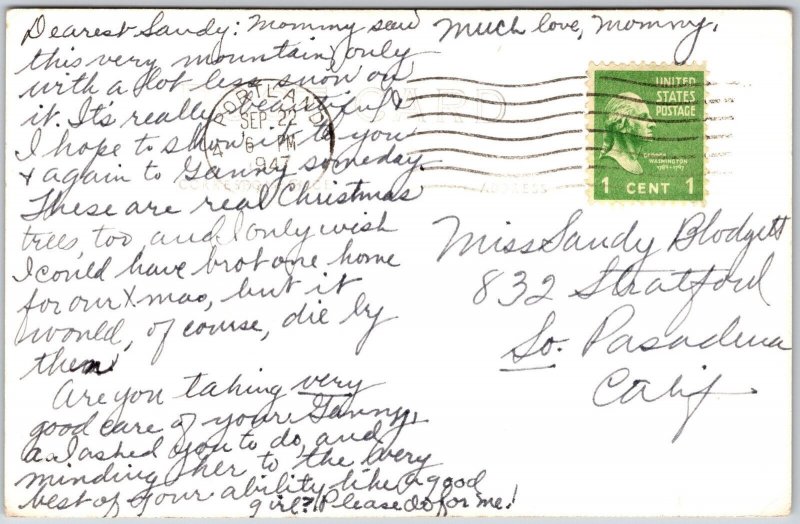 Dearest Sandy: Mommy saw
this very mountain only
with a lot less snow on
it. It's really beautiful &
I hope to show it to you
& again to Ganny someday.
These are real Christmas
trees, too, and I only wish
I could have brot one home
for our X-mas, but it
would, of course, die by
then.
Are you taking very
good care of your Ganny,
as I asked you to do, and
minding her to the very
best of your ability like a good
girl? Please do for me!
Much love, Mommy.
POST CARD
PORTLAND
SEP 22
6 PM
1947
CORRESPONDENCE
ADDRESS
UNITED
STATES
POSTAGE
GEORGE
WASHINGTON
1789-1797
1 CENT 1
Miss Sandy Blodgett
832 Stratford
So. Pasadena
Calif